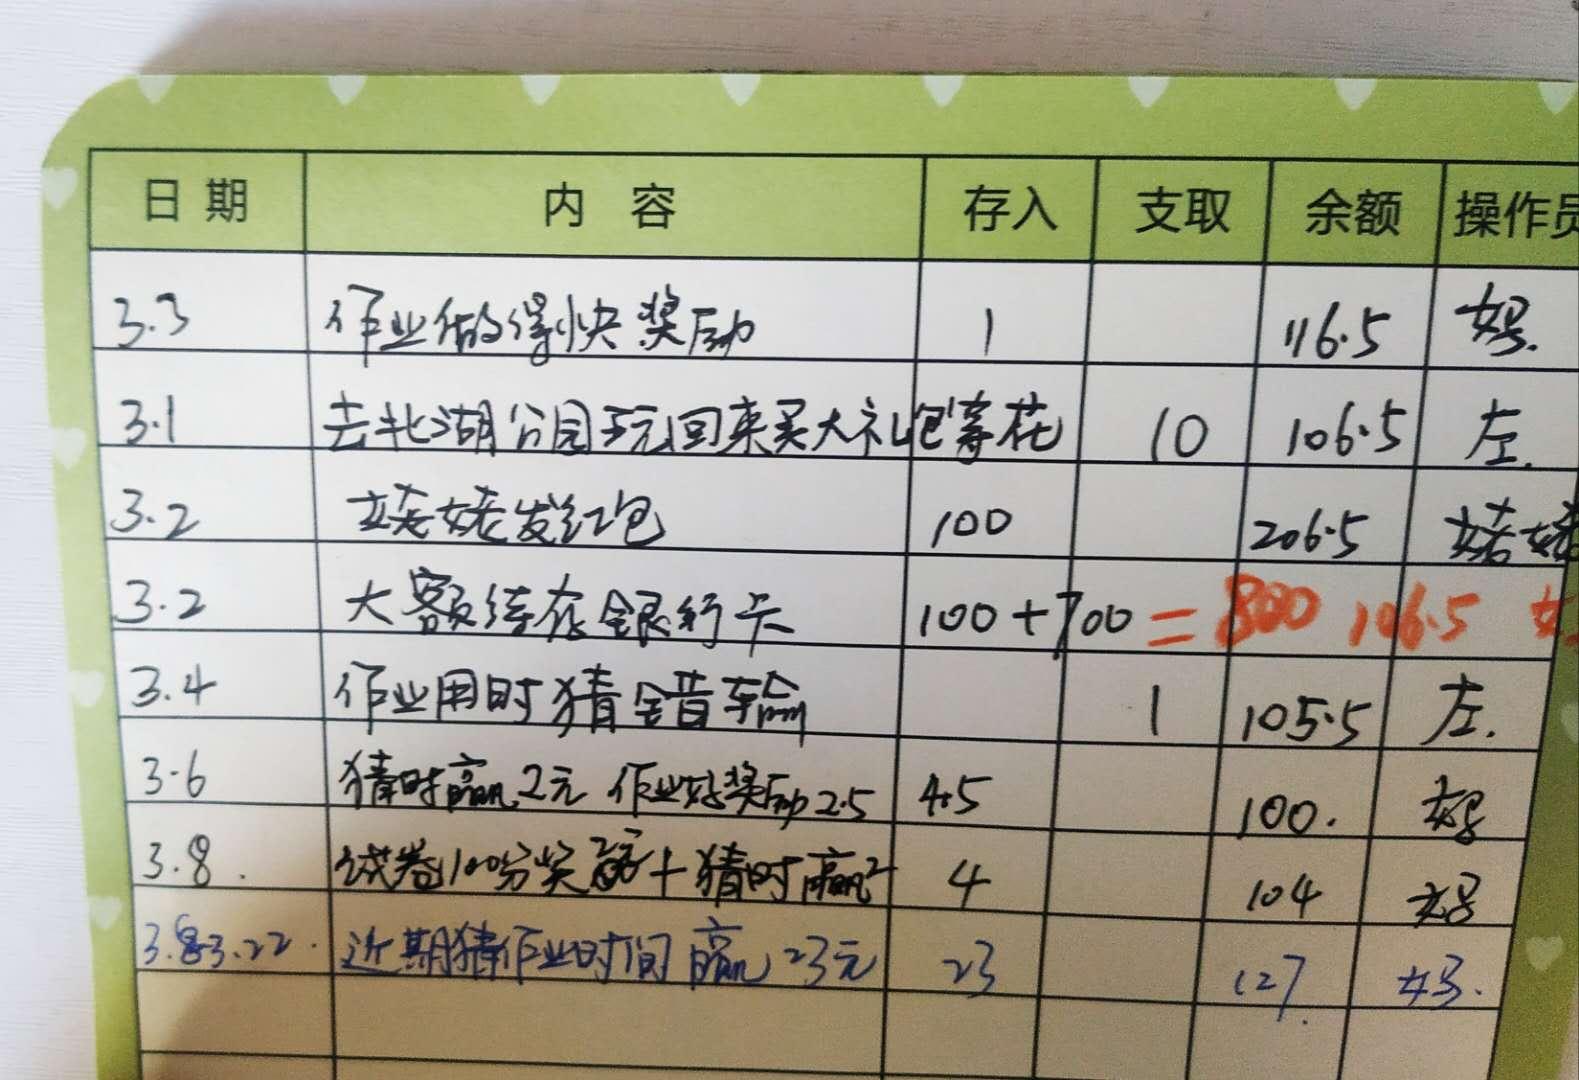 日期 内容 存入 支取 余额 操作员
3.3 作业做得快奖励 1 116.5 妈.
3.1 去北湖公园玩回来买大礼包等花 10 106.5 左.
3.2 姥姥发红包 100 206.5 姥姥
3.2 大额转存银行卡 100+700=800 106.5
3.4 作业用时猜错输 1 105.5 左.
3.6 猜时赢2元 作业好奖励2.5 4.5 100. 妈
3.8. 试卷100分奖 + 猜时赢2 4 104 妈
3.8-3.22. 近期猜作业时间赢23元 23 127. 妈.